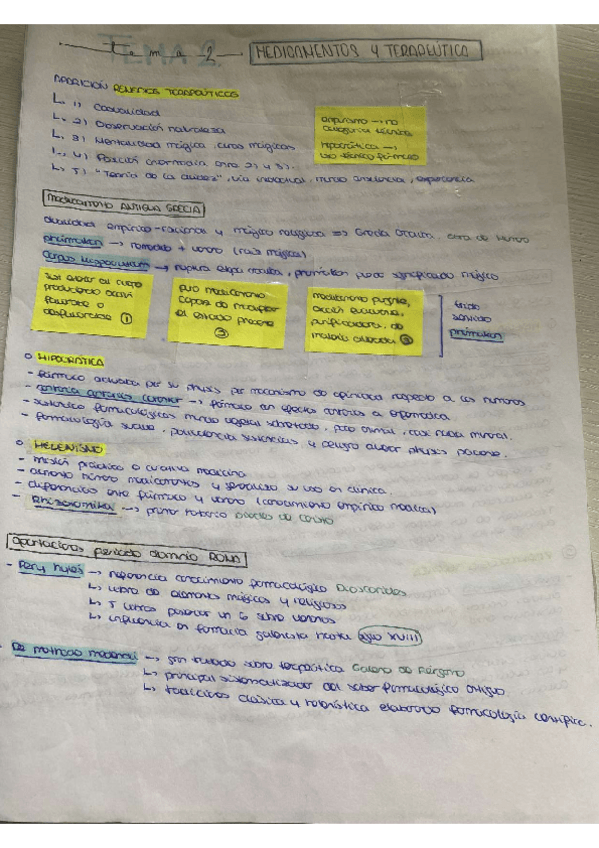 TEMA 2. MEDICAMENTOS Y TERAPÉUTICA
APARICIÓN REMEDIOS TERAPÉUTICOS
↳ 1) Casualidad
↳ 2) Observación naturaleza
↳ 3) Mentalidad mágica, curas mágicas
↳ 4) Posición intermedia entre 2) y 3).
↳ 5) "Teoría de la , vía inductiva, mundo , experiencia
empirismo → no
técnica
hipocrática →
uso técnico fármaco
medicamento ANTIGUA GRECIA
dualidad empírico-racional y mágico religiosa => Grecia Arcaica, obra de Homero
phármakon → remedio + veneno (raíz mágica)
Corpus hippocraticum → ruptura etapa mágica, phármakon pierde significado mágico
producción acción
favorable o
desfavorable ①
puro medicamento
capaz de modificar
el estado presente
medicamento purgante,
acción evacuante,
purificadora, de
materia
triple
sentido
phármakon
o HIPOCRÁTICA
- fármaco actuaba por su physis por mecanismo de respecto a los humores
- contraria contrariis curantur → fármaco con efectos contrarios a enfermedad
- sustancias farmacológicas mundo vegetal sobretodo, poco animal, casi nada mineral.
- farmacología suave, polivalencia sustancias y peligro alterar physis paciente.
o HELENISMO
- misión práctica o curativa medicina
- aumento número medicamentos y su uso en clínica.
- diferencias entre fármaco y veneno (conocimiento empírico médica)
- Rhizotomika → primer tratado Diocles de Caristo
Aportaciones periodo dominio ROMA
- Peri hyles → referencia conocimiento farmacológico Dioscórides
↳ libro de elementos mágicos y religiosos
↳ 5 libros un 6 sobre venenos
↳ influencia en farmacia galenista hasta siglo XVIII
De methodo medendi → gran tratado sobre terapéutica Galeno de Pérgamo
↳ principal sistematizador del saber farmacológico antiguo
↳ tradiciones clásica y helenística elaborando farmacología científic.